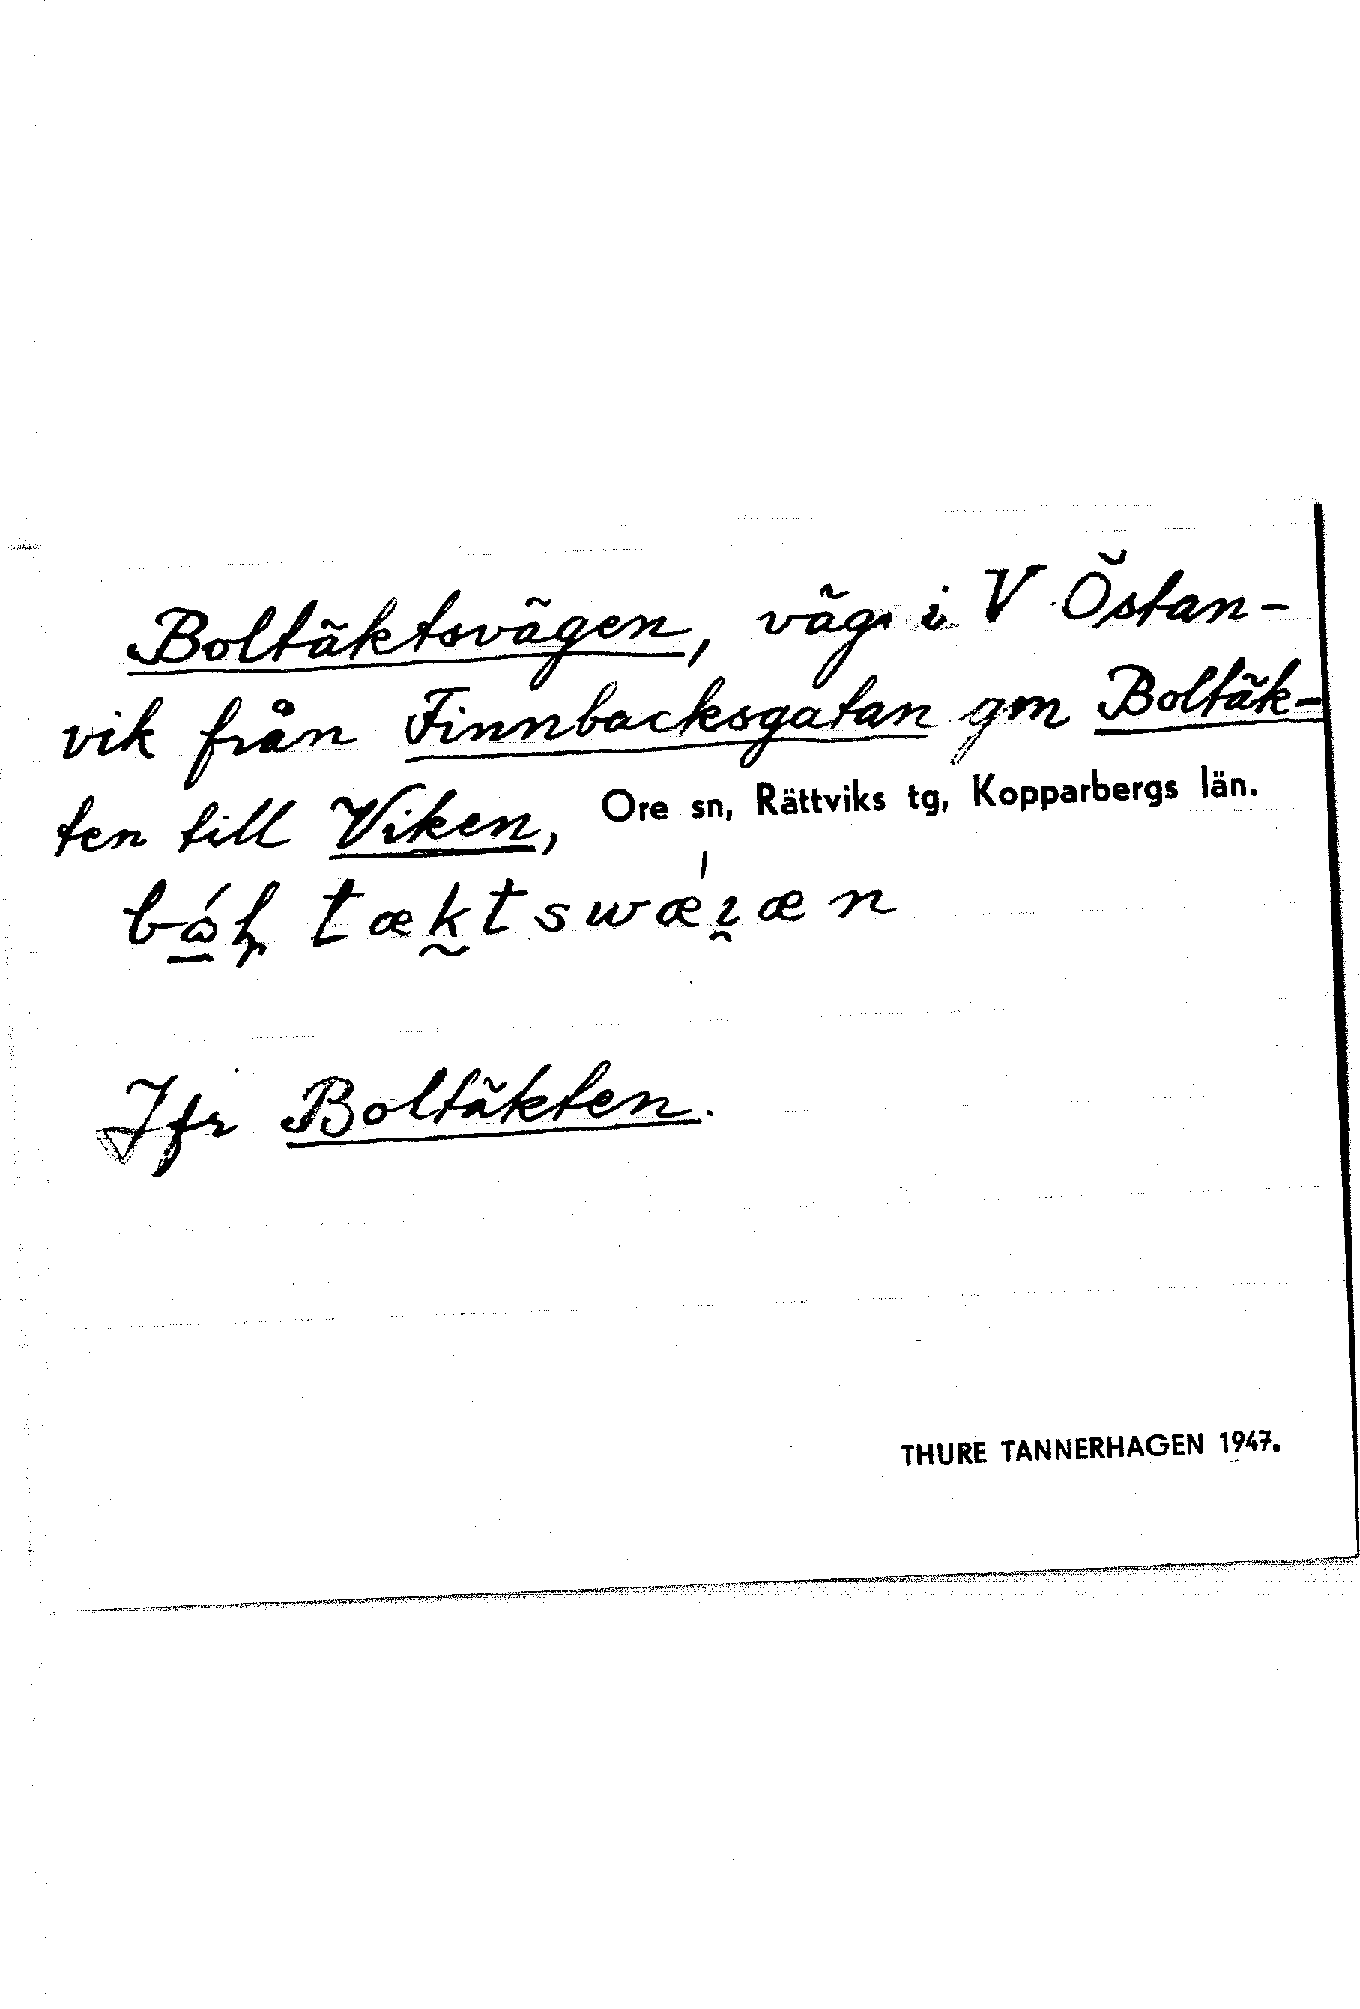 Boltäktsvägen, väg i V Östan-
vik från Finnbacksgatan gm Boltäk-
ten till Viken, Ore sn, Rättviks tg, Kopparbergs län.
Jfr Boltäkten.
THURE TANNERHAGEN 1947.